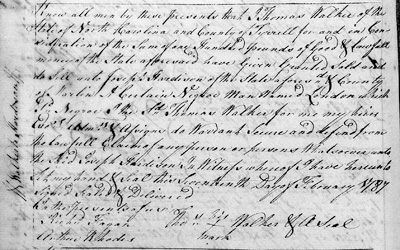 Know all men by these presents that I Thomas Walker of the
State of North Carolina and County of Tyrrell for and in Con-
sideration of the Sum of one Hundred Pounds of Good & lawfull
money of the State aforesaid have Given Granted Sold and
do Sell unto Joseph Hardison of the State aforesaid & County
of Martin A Certain Negroe Man Named London which
Negroe I the Sd. Thomas Walker for me my heirs
& Assigns do Warrant Secure and defend from
the lawfull Claim of any person or persons Whatsoever unto
the Said Joseph Hardison In Witness whereof I have hereunto
Set my hand & Seal this Seventeenth Day of February 1787
Signd Seald & Delivered
In the presents of us
Fagan Thos his Walker & A Seal
Arthur Rhodes mark